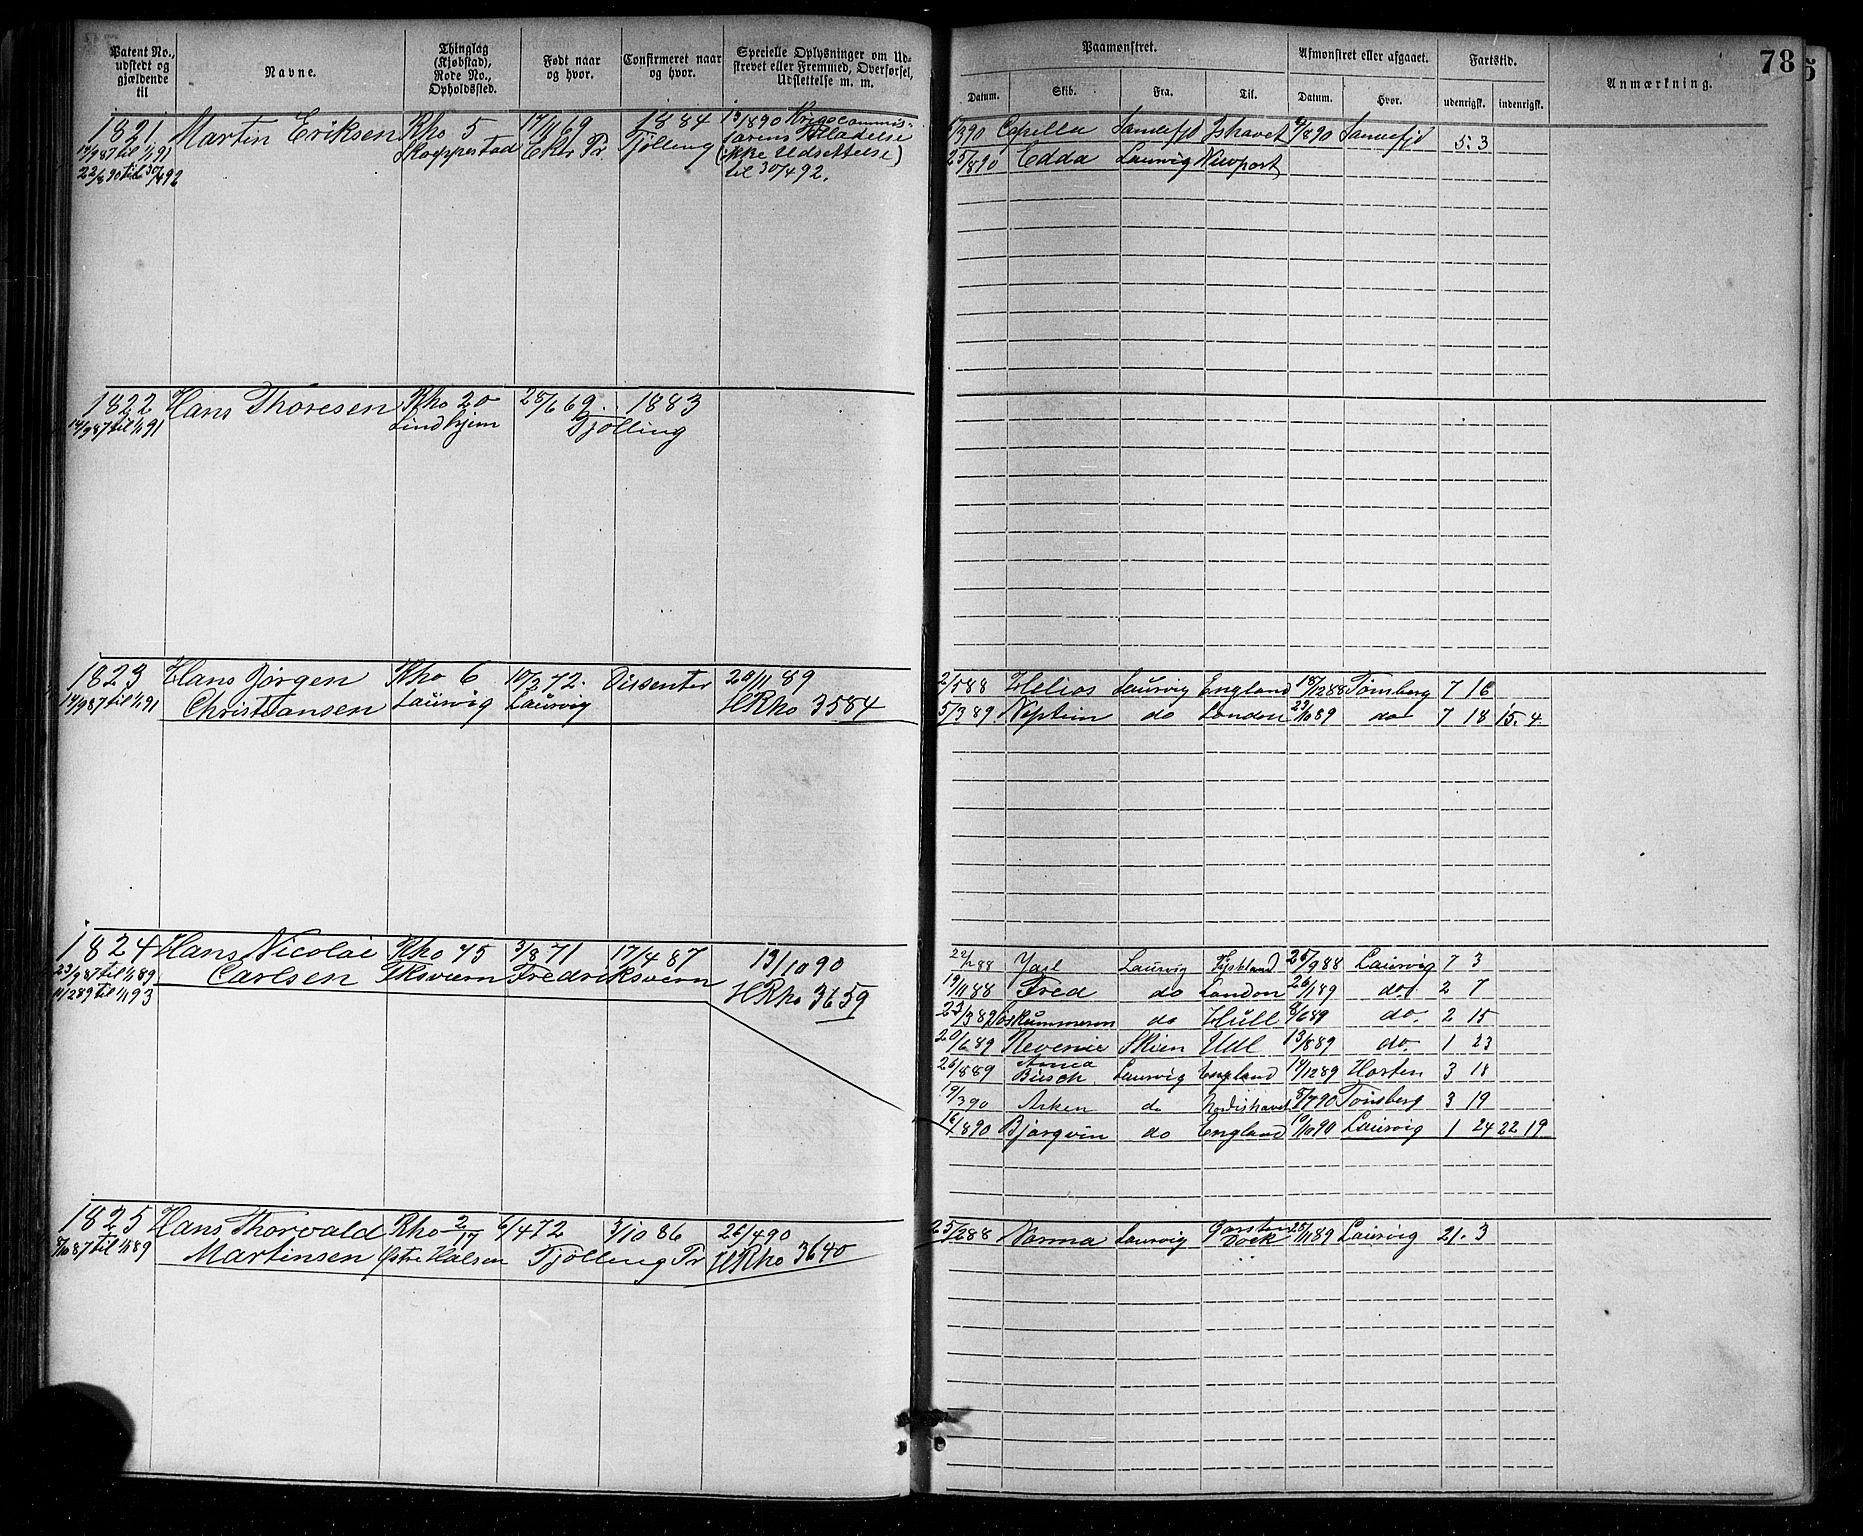 Patent No., udstedt og gjældende til
Navne.
Thinglag (Kjøbstad), Rode No., Opholdssted.
Født naar og hvor.
Confirmeret naar og hvor.
Specielle Oplysninger om Udstrevet eller Fremmed, Overførsel, Udslettelse m. m.
Paamønstret.
Afmønstret eller afgaaet.
Fartstid.
Anmærkning.
78
Datum. Skib. Fra. Til. Datum. Hvor. udenrigsk. indenrigsk.
1821 Martin Eriksen Rho 5 17/11 69 1884 13/8 90 Krigscommis-
14/9 87 til 1/1 91 Skoppestad Eker Pr. Tjølling særens Tilladelse
22/8 90 til 30/4 92 (ikke Udsettelse)
til 30/4 92.
Capella Sandefjd Ishavet Sandefjd 5. 3
25/8 90 Edda Laurvig Newport
1822 Hans Thoresen Rho 20 28/6 69 1883
14/9 87 til 1/1 91 Lindhjem Tjølling
1823 Hans Jørgen Rho 6 10/3 72. Dissenter 20/11 89
14/9 87 til 1/1 91 Christiansen Laurvig Laurvig HRho 3584
2/5 88 Helios Laurvig England 18/12 88 Tønsberg 7 16
5/3 89 Neptun do London 23/10 89 do 7 18 15. 4
1824 Hans Nicolai Rho 75 3/8 71 17/4 87 13/10 90
23/9 87 til 1/1 89 Carlsen Fksværn Fredriksværn HRho 3659
11/2 89 til 1/1 93
22/2 88 Jarl Laurvig 25/9 88 Laurvig 7 3
19/11 88 Fred do London 26/1 89 do. 2 7
23/3 89 do Hull 8/6 89 do. 2 15
20/6 89 Skien Udl 13/8 89 do 1 23
26/8 89 Anna Busch Laurvig England 14/12 89 Horten 3 18
19/3 90 Arken do Nordishavet 8/7 90 Tønsberg 3 19
16/8 90 Bjorgvin do England 10/10 90 Laurvig 1 24 22 19
1825 Hans Thorvald Rho 2/17 6/4 72 3/10 86 26/4 90
til 1/1 89 Martinsen Østre Halsen Tjølling Pr HRho 3640
25/2 88 Norma Laurvig Garston Dock 28/11 89 Laurvig 21. 3